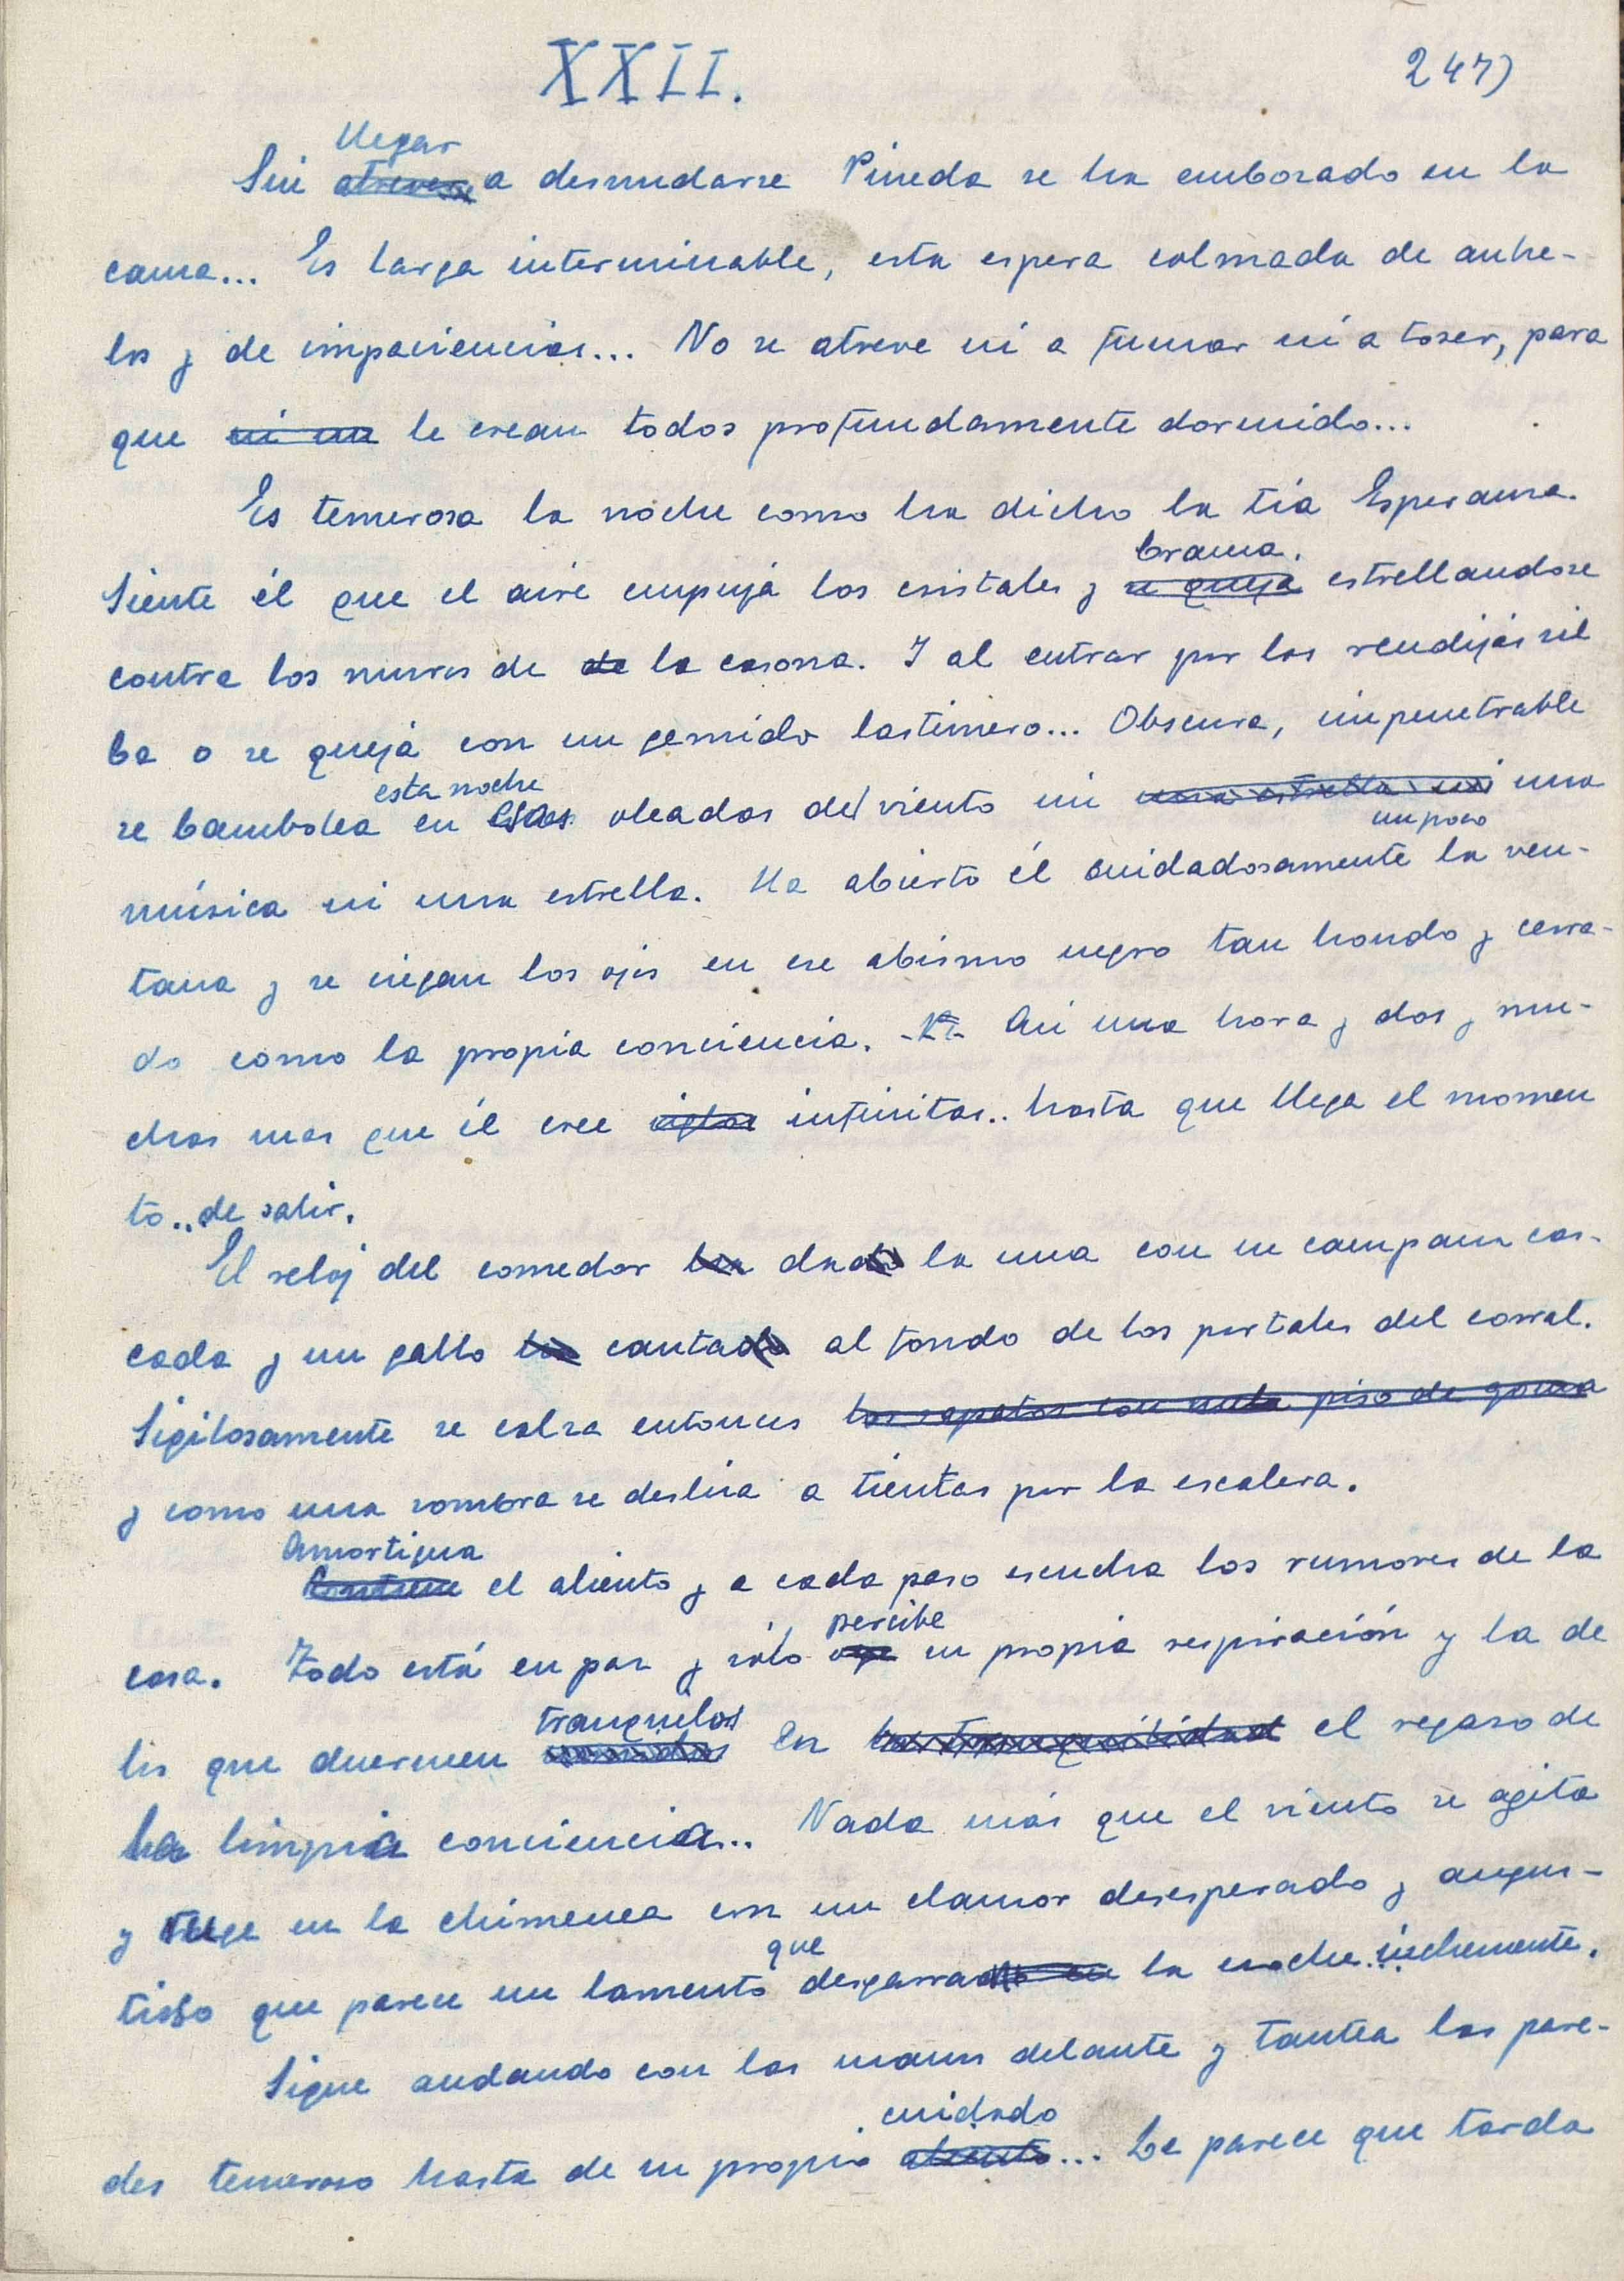 XXII.
247)
llegar
Sin atreverse a desnudarse Pineda se ha embozado en la
cama... Es larga interminable, esta espera colmada de anhe-
los y de impaciencias... No se atreve ni a fumar ni a toser, para
que ni un le crean todos profundamente dormido...
Es temerosa la noche como ha dicho la tía Esperanza.
brama.
Siente él que el aire empuja los cristales y se queja estrellandose
contra los muros de de la casona. Y al entrar por las rendijas sil
ba o se queja con un gemido lastimero... Obscura, impenetrable
esta noche
se bambolea en esas oleadas del viento ni una estrella ni una
un poco
música ni una estrella. Ha abierto él cuidadosamente la ven-
tana y se ciegan los ojos en ese abismo negro tan hondo y cerra-
do como la propia conciencia. Asi una hora y dos y mu-
chas mas que él cree infinitas.. hasta que llega el momen
to.. de salir.
El reloj del comedor ha dado la una con su campana cas-
cada y un gallo ha cantado al fondo de los portales del corral.
Sigilosamente se calza entonces los zapatos con piso de goma
y como una sombra se desliza a tientas por la escalera.
Amortigua
Contiene el aliento y a cada paso escucha los rumores de la
percibe
casa. Todo está en paz y sólo oye su propia respiración y la de
tranquilos
los que duermen en la tranquilidad el regazo de
la limpia conciencia... Nada más que el viento se agita
y ruge en la chimenea con un clamor desesperado y angus-
que
tioso que parece un lamento desgarrado en la noche inclemente.
Sigue andando con las manos delante y tantea las pare-
cuidado
des temeroso hasta de su propio aliento... Le parece que tarda